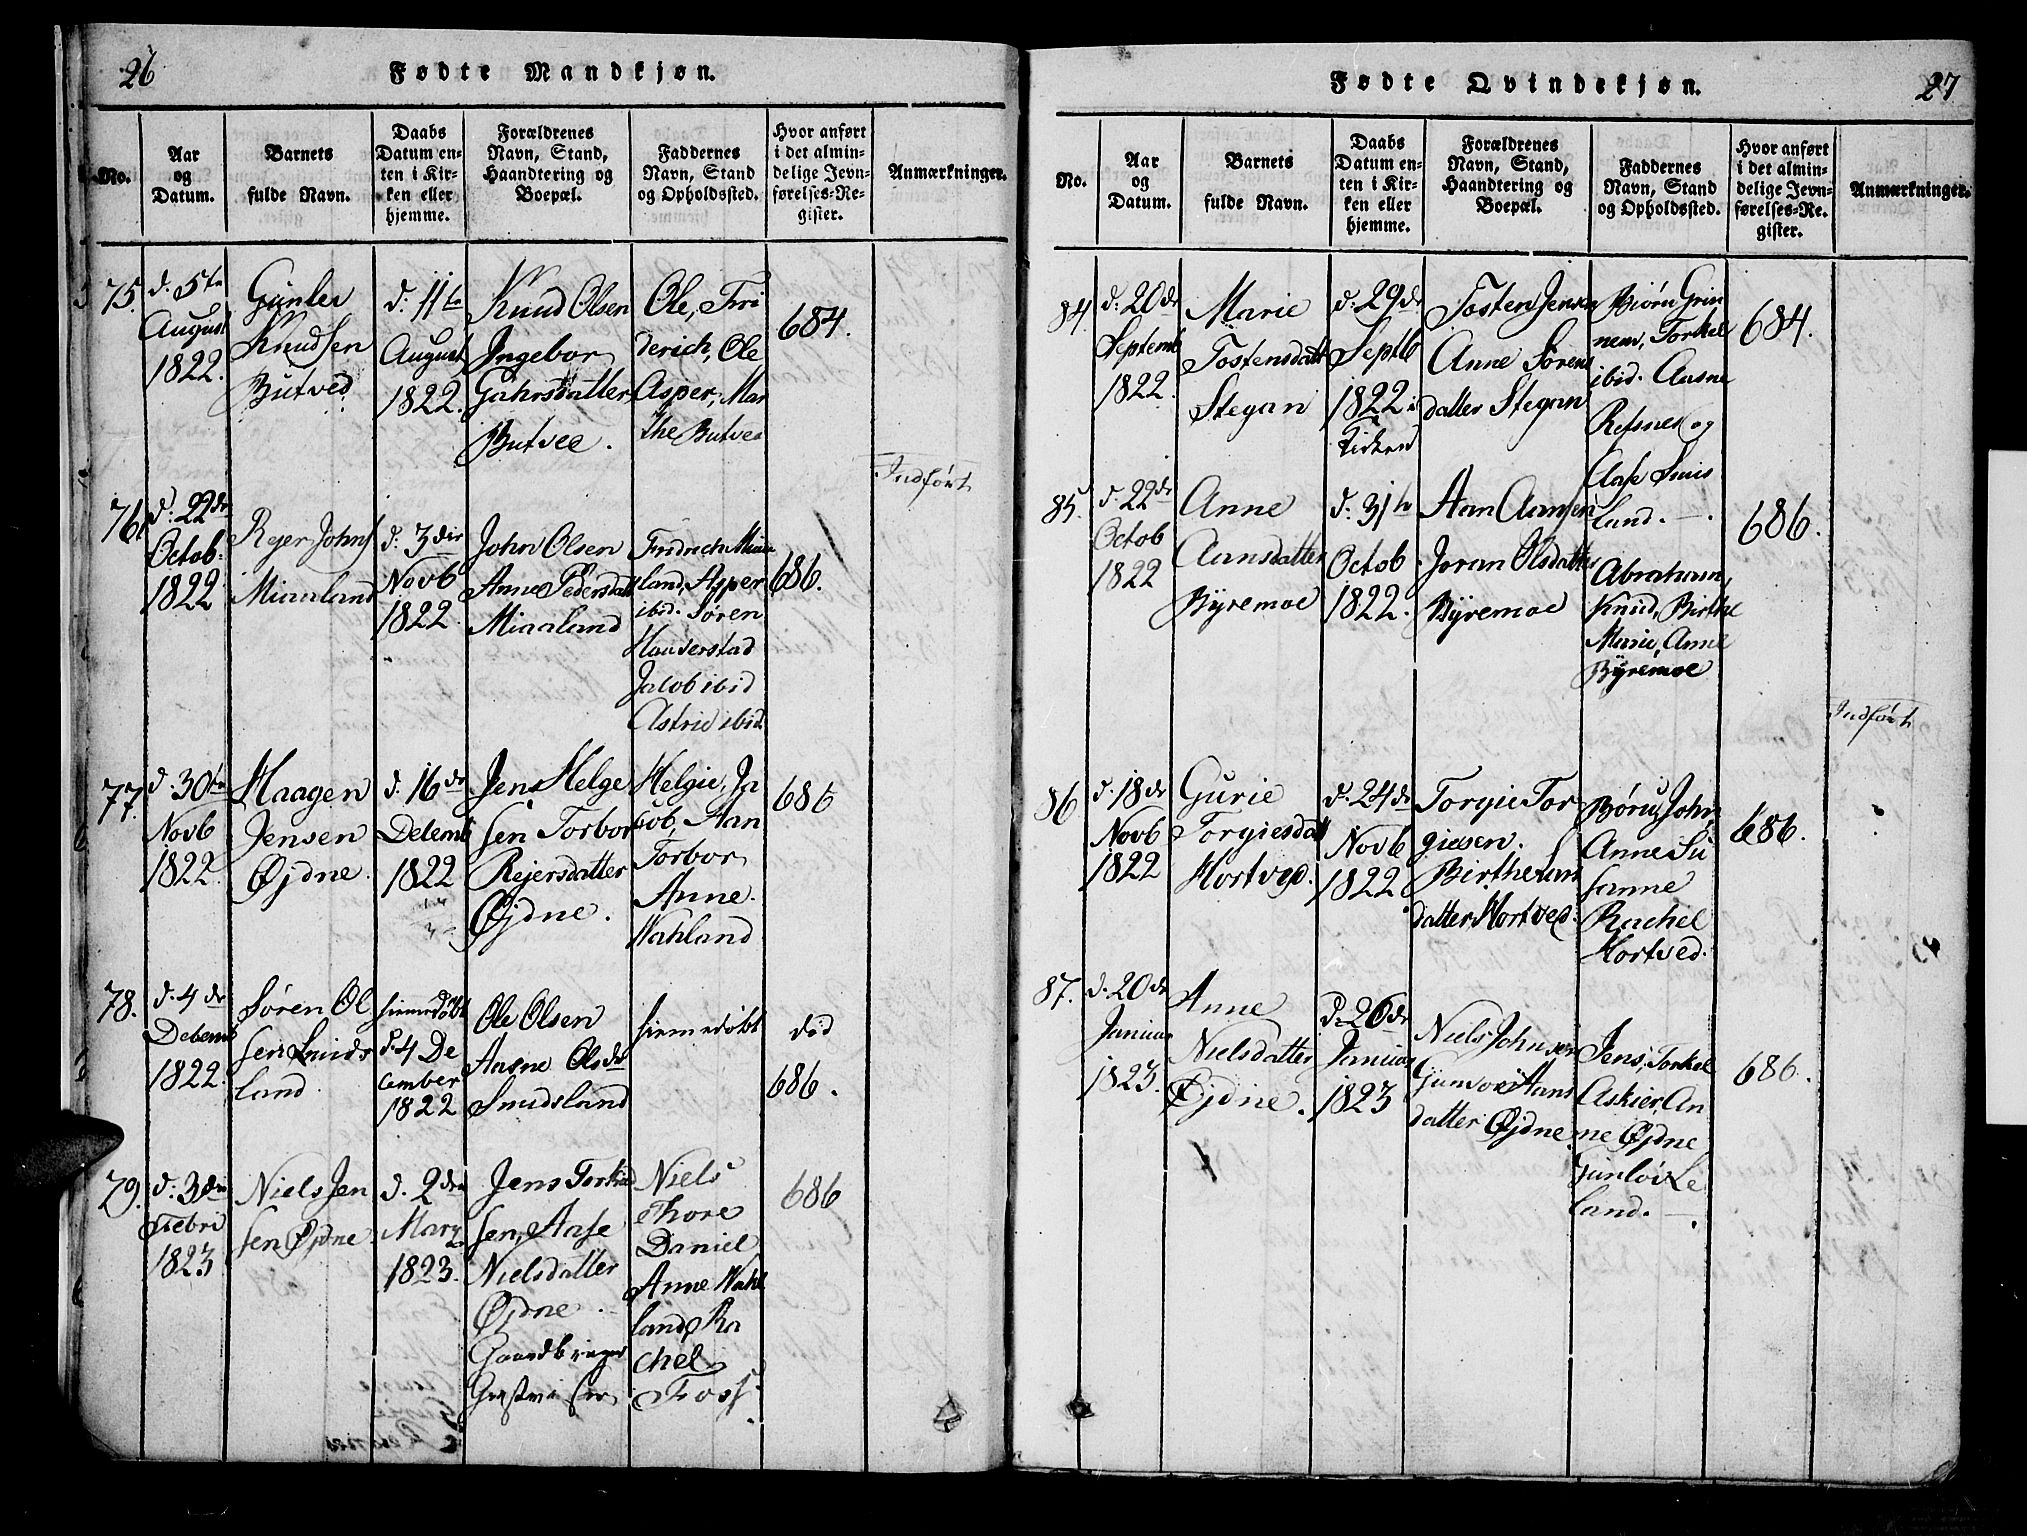 26
Fødte Mandkjøn.
No.
Aar
og
Datum.
Barnets
fulde Navn.
Daabs
Datum en-
ten i Kir-
ken eller
hjemme.
Forældrenes
Navn, Stand,
Haandtering og
Boepæl.
Faddernes
Navn, Stand
og Opholdssted.
Hvor anført
i det almin-
delige Jevn-
førelses-Re-
gister.
Anmærkninger.
75.
d. 5te
August
1822.
Gunler
Knudsen
Butved
d. 11te
August
1822.
Knud Olsen
Ingebor
Gahrsdatter
Butvee.
Ole, Fri
derich, Ole
Asper, Mar
the Butvee
684.
Indført
76.
d. 22de
Octob.
1822
Rejer Johns
Miaaland
d. 3die
Novb
1822.
John Olsen
Anne Pedersdatt
Miaaland
Fridrich Miaa
land, Asper
ibid. Søren
Haaverstad
Jacob ibid
Astrie ibid
686.
77.
d. 30te
Novb
1822.
Haagen
Jensen
Øjdne.
d. 16de
Decemb
1822
Jens Helge
sen Torbor
Rejersdatter
Øjdne.
Helgie, Ja
cob, Aan
Torbor
Anne.
Wahland
686
78.
d. 4de
Decemb
1822.
Søren Ol
sen Smids
land.
hiemedøbt
d. 4 De
cember
1822
Ole Olsen
Aasne Olsdr
Smidsland
hiemedøbt
død
686.
79.
d. 3die
Febri
1823
Niels Jen
sen Øjdne.
d. 2den
Marz
1823.
Jens Torkild
sen, Aase
Nielsdatter
Øjdne.
Gaardbruger
Niels
Thore
Daniel
Anne Wahl
land, Ra
chel
Foss.
686
27
Fødte Qvindekjøn.
No.
Aar
og
Datum.
Barnets
fulde Navn.
Daabs
Datum en-
ten i Kir-
ken eller
hjemme.
Forældrenes
Navn, Stand,
Haandtering og
Boepæl.
Faddernes
Navn, Stand
og Opholdssted.
Hvor anført
i det almin-
delige Jevn-
førelses-Re-
gister.
Anmærkninger.
84.
d. 20de
Septemb
1822.
Marie
Tostensdatt
Stegan
d. 29de
Septb
1822 i
Kirken
Tosten Jensen
Anne Sørens
datter Stegan
Biørn Grin
nem, Torkel
ibid. Aasne
Refsnes og
Aase Smis
land.
684.
85.
d. 22de
Octob
1822
Anne
Aansdatter
Byremoe
d. 31te
Octob
1822.
Aan Aansen
Joran Olsdatter
Byremoe
Abraham,
Knud, Birthe
Marie, Anne
Byremoe
686.
Indført
86.
d. 18de
Novb
1822
Gurie
Torgiesdatt
Hortved.
d. 24de
Novb
1822
Torgie Tor
giesen.
Birthe Aan
datter Hortved.
Børu, John
Anne Su
sanne
Rachel
Hortved.
686.
87.
d. 20de
Januar
1823.
Anne
Nielsdatter
Øjdne.
d. 26de
Januar
1823
Niels Johnsen
Gunvor Aans
datter Øjdne.
Jens, Torkel
Askier, An
ne Øjdne
Gunløv Le
land.
686.